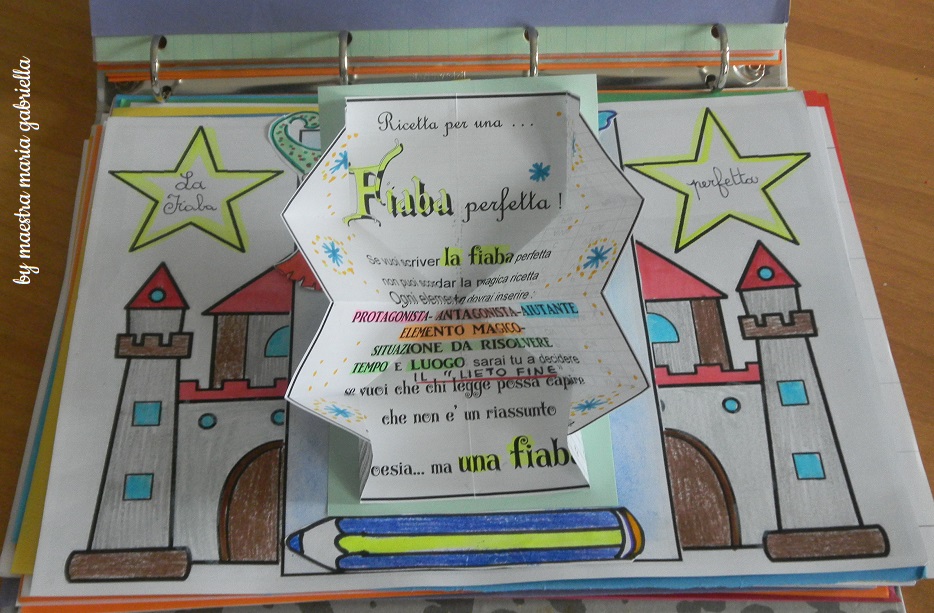 by maestra maria gabriella
La
Fiaba
perfetta
Ricetta per una ...
Fiaba perfetta !
Se vuoi scriver la fiaba perfetta
non puoi scordar la magica ricetta
Ogni elemento dovrai inserire:
PROTAGONISTA- ANTAGONISTA-AIUTANTE
ELEMENTO MAGICO-
SITUAZIONE DA RISOLVERE
TEMPO E LUOGO sarai tu a decidere
IL "LIETO FINE"
se vuoi che chi legge possa capire
che non e' un riassunto
oesia... ma una fiaba